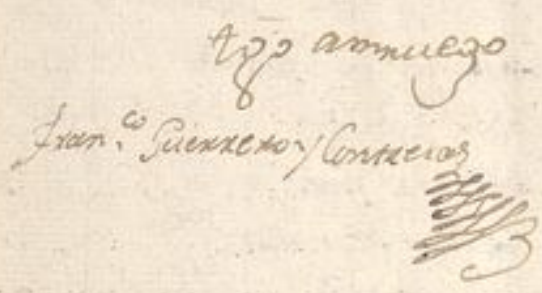 tgo amruego
Fran.co Guerrero y Contreras